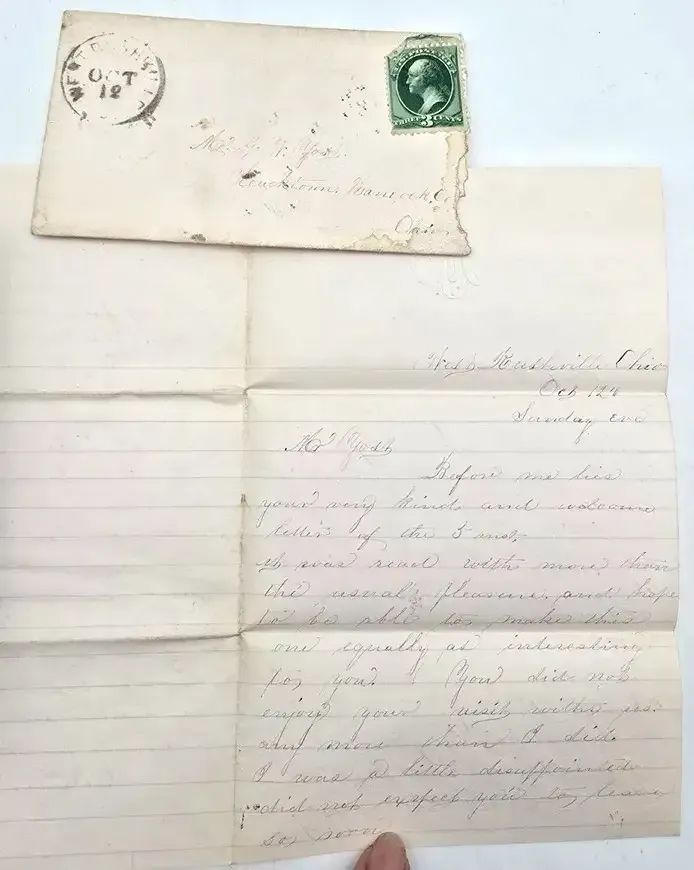 WEST RUSHVILLE
OCT
12
U.S. POSTAGE
THREE 3 CENTS
Mr. Yost.
Hancock Co.
Ohio
West Rushville Ohio
Oct 12th
Sunday eve
Mr Yost
Before me lies
your very kind and welcome
letter of the 5 inst.
it was read with more than
the usual pleasure and hope
to be able to make this
one equally as interesting
to you. You did not
enjoy your visit with us
any more than I did.
I was a little disappointed
did not expect you to leave
so soon